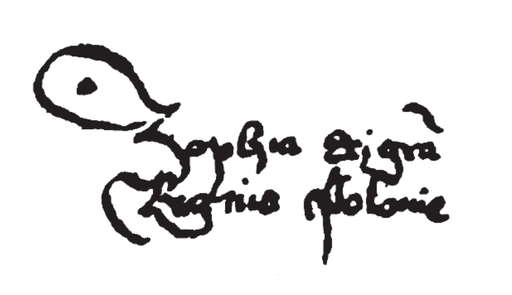 Sophia dei grã
Regina Polonie